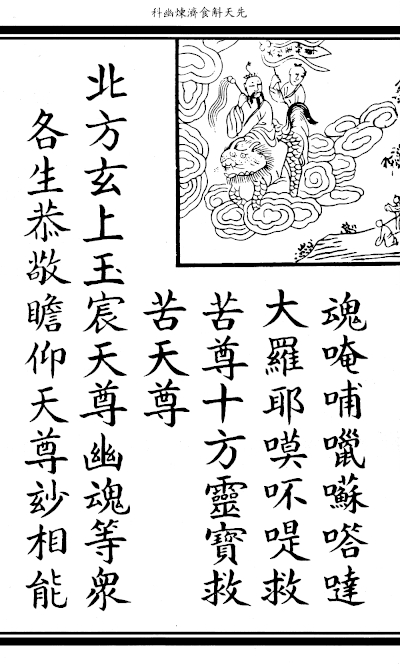 先天斛食濟煉幽科
魂唵哺囌嗒噠
大羅耶嗼吥救
苦尊十方靈寶救
苦天尊
北方玄上玉宸天尊幽魂等眾
各生恭敬瞻仰天尊玅相能